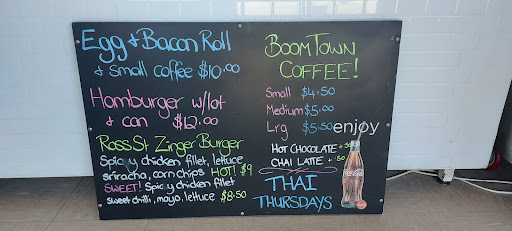 Egg & Bacon Roll
& small coffee $10.00
Hamburger w/lot
& can $12.00
Ross St Zinger Burger
Spicy chicken fillet, lettuce
sriracha, corn chips HOT! $9
SWEET! Spicy chicken fillet
sweet chilli, mayo, lettuce $8.50
BOOMTOWN
COFFEE!
Small $4.50
Medium $5.00
Lrg $5.50
HOT CHOCOLATE + .50
CHAI LATTE + .50
THAI
THURSDAYS
enjoy
Coca-Cola